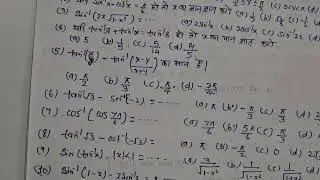 sin⁻¹x - cos⁻¹x = π/6 हो तो x का मान ज्ञात करो
(3) sin⁻¹(2x√1-x²) = ......
(4) यदि tan⁻¹ tan⁻¹ हो तो x का मान ज्ञात करो
(a) 5 (b) 1/5 (c) 5/14 (d) 14/5
(5) tan⁻¹(x/y) - tan⁻¹(x-y/x+y) का मान है।
(a) π/2 (b) π/3 (c) π/4 (d) -3π/4
(6) tan⁻¹√3 - sec⁻¹(-2) = ...... (a) π (b) -π/3 (c) π/3 (d)
(7) cos⁻¹(cos 7π/6) = ...... (a) 7π/6 (b) 5π/6 (c) π/3 (d)
(8) tan⁻¹√3 - cot⁻¹(-√3) = ...... (a) π (b) -π/2 (c) 0 (d)
(9) sin(tan⁻¹x), |x|<1 = ...... (a) x/√1-x² (b) 1/√1-x² (c) 1/√1+x²
(10) sin⁻¹(1-x) - 2sin⁻¹x =